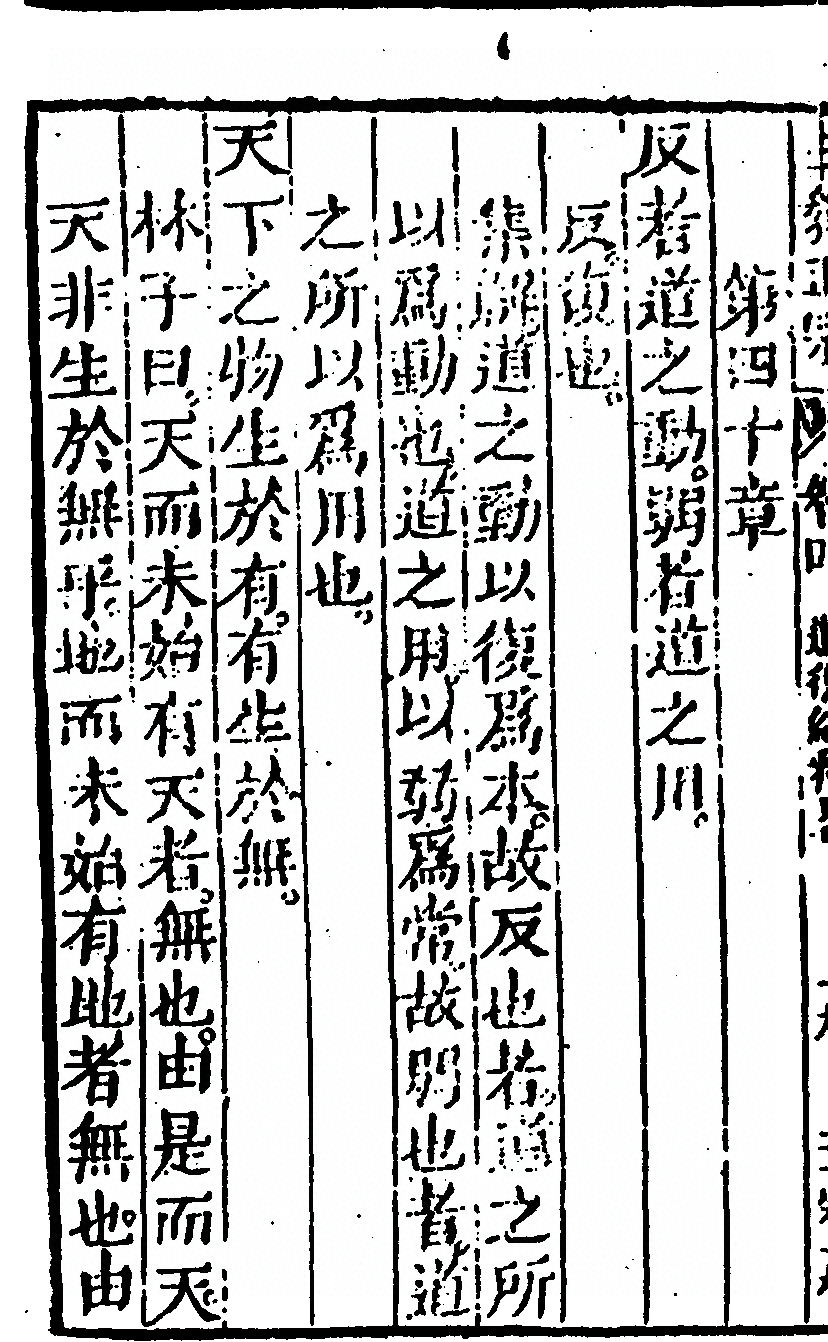 第四十章
反者道之動。弱者道之用。
反。復也。
集解道之動以復爲本。故反也者。道之所
以爲動也。道之用。以弱爲常。故弱也者道
之所以爲用也。
天下之物生於有。有生於無。
林子曰。天而未始有天者。無也。由是而天。
天非生於無乎。地而未始有地者無也。由